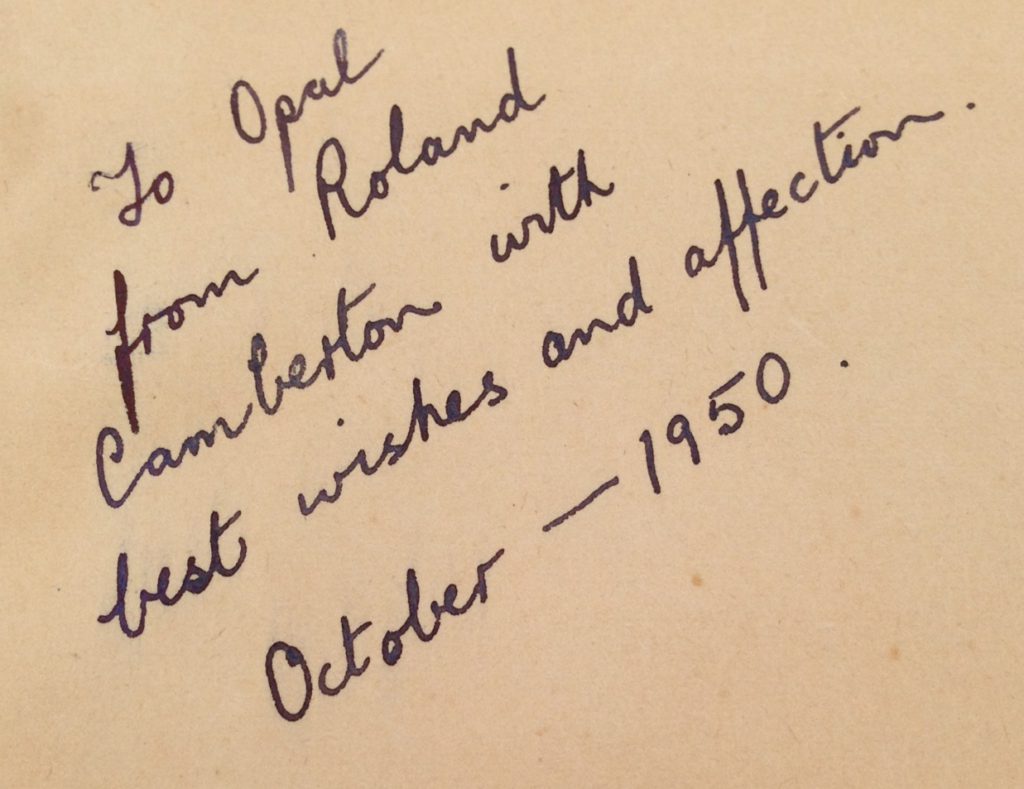 To Opal
from Roland
Camberton with
best wishes and affection.
October — 1950.